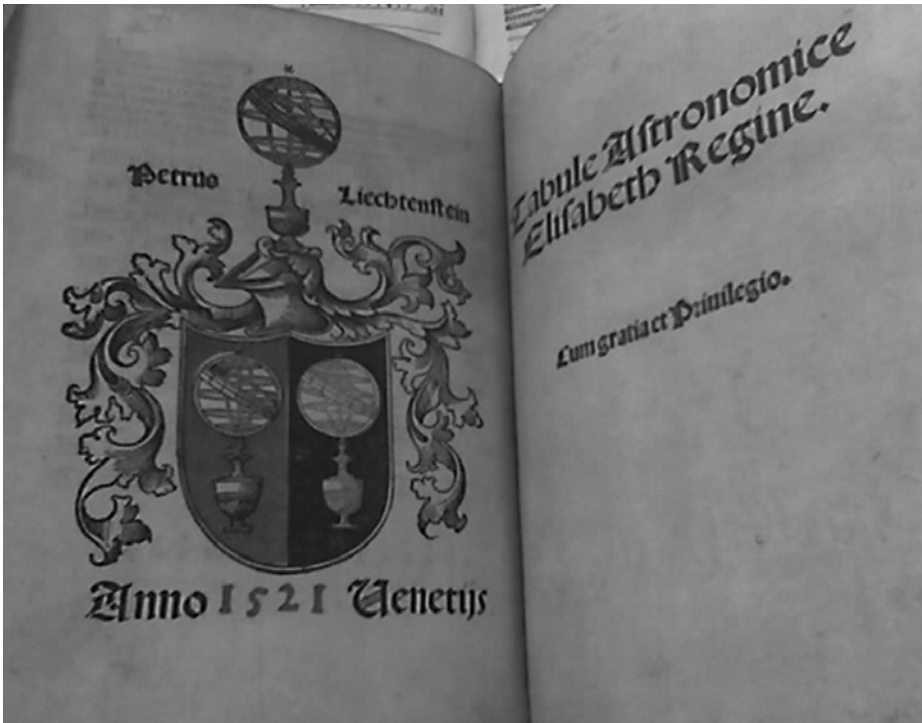 Petrus
Liechtenstein
Anno 1521 Uenetijs
Tabule Astronomice
Elisabeth Regine.
Cum gratia et Priuilegio.